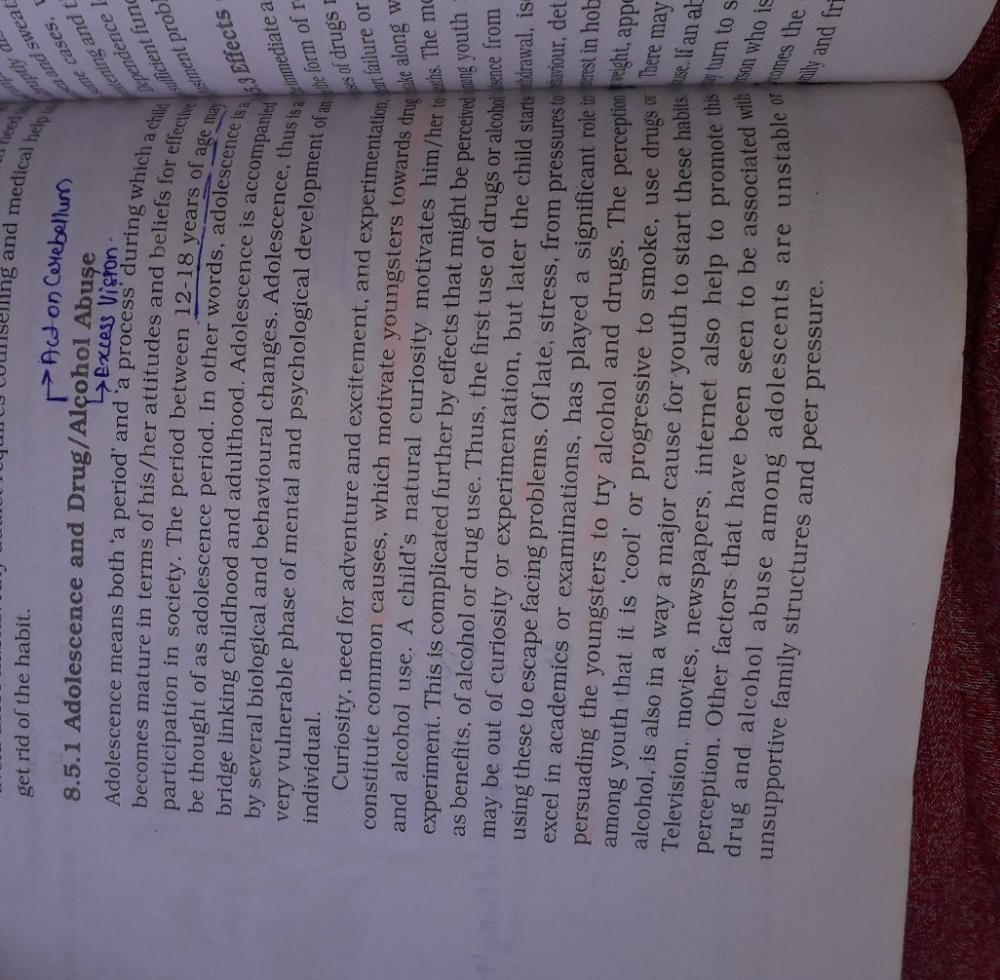 selling and medical help
get rid of the habit.
→ Act on Cerebellum
8.5.1 Adolescence and Drug/Alcohol Abuse
→ Excess Vision.
Adolescence means both 'a period' and 'a process' during which a child
becomes mature in terms of his/her attitudes and beliefs for effective
participation in society. The period between 12-18 years of age may
be thought of as adolescence period. In other words, adolescence is a
bridge linking childhood and adulthood. Adolescence is accompanied
by several biological and behavioural changes. Adolescence, thus is a
very vulnerable phase of mental and psychological development of an
individual.
Curiosity, need for adventure and excitement, and experimentation,
constitute common causes, which motivate youngsters towards drug
and alcohol use. A child's natural curiosity motivates him/her to
experiment. This is complicated further by effects that might be perceived
as benefits, of alcohol or drug use. Thus, the first use of drugs or alcohol
may be out of curiosity or experimentation, but later the child starts
using these to escape facing problems. Of late, stress, from pressures to
excel in academics or examinations, has played a significant role in
persuading the youngsters to try alcohol and drugs. The perception
among youth that it is 'cool' or progressive to smoke, use drugs or
alcohol, is also in a way a major cause for youth to start these habits.
Television, movies, newspapers, internet also help to promote this
perception. Other factors that have been seen to be associated with
drug and alcohol abuse among adolescents are unstable or
unsupportive family structures and peer pressure.
and sweat
cases,
3.3 Effects
immediate a
the form of
of drugs
failure or
along w
The
youth
from
in hob
weight, appe
There may
If an
turn to s
who is
comes the
and fri